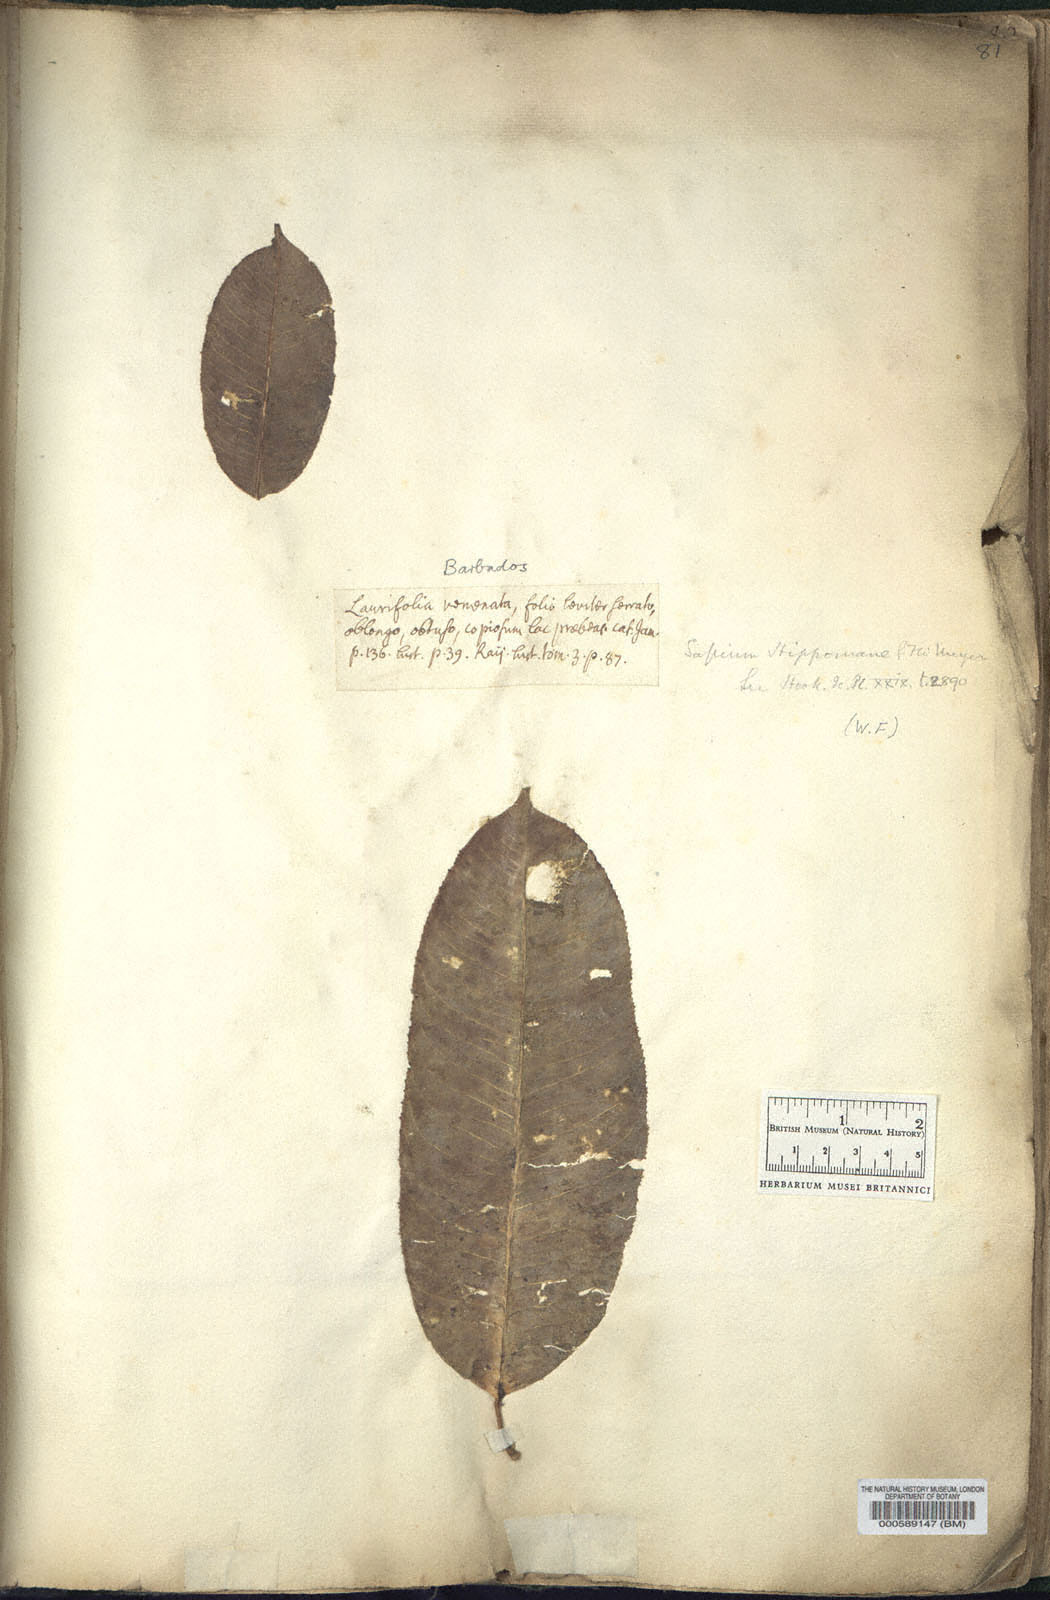 81
Barbados
Laurifolia venenata, folio leviter serrato,
oblongo, obtuso, copiosum lac præbens. cat. Jam.
p. 136. hist. p. 39. Raij. hist. tom. 3. p. 87.
Sapium Hippomane G. Meyer
See Hook. Ic. Pl. XXIX. t. 2890
(W.F.)
1 2
BRITISH MUSEUM (NATURAL HISTORY)
1 2 3 4 5
HERBARIUM MUSEI BRITANNICI
THE NATURAL HISTORY MUSEUM, LONDON
DEPARTMENT OF BOTANY
000589147 (BM)